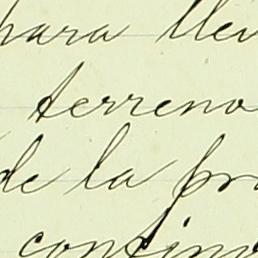 para llev
terreno
de la pro
contino